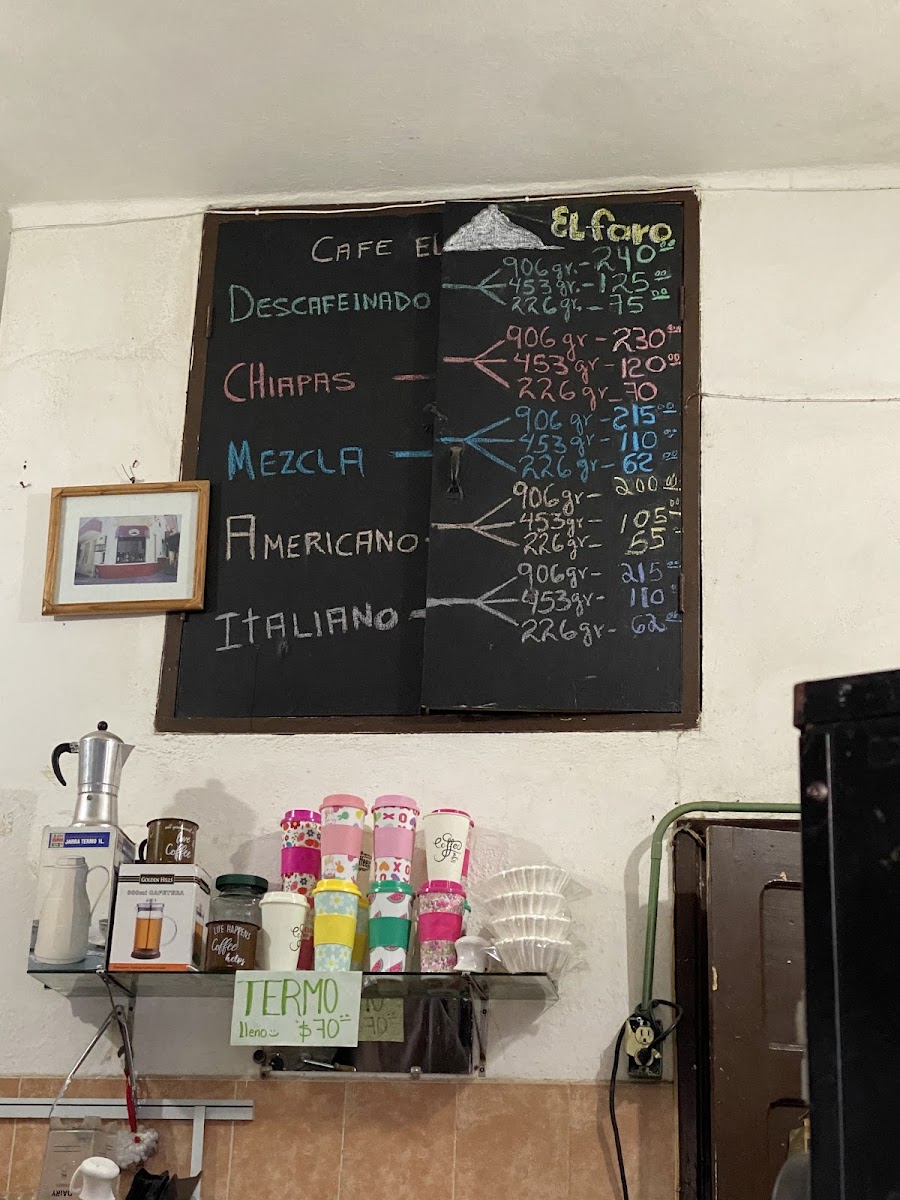 CAFE EL
EL faro
DESCAFEINADO
906 gr. - 240.00
453 gr. - 125.00
226 gr. - 75.00
CHIAPAS
906 gr - 230.00
453 gr - 120.00
226 gr - 70
MEZCLA
906 gr - 215.00
453 gr - 110.00
226 gr - 62.00
AMERICANO
906 gr - 200.00
453 gr - 105
226 gr - 55
ITALIANO
906 gr - 215.00
453 gr - 110
226 gr - 62.00
JARRA TERMO 1L.
Love
Coffee
GOLDEN HILLS
CAFETERA
LIFE HAPPENS
Coffee
helps
Coffee
XO
TERMO
lleno $70.00
70
DAIRY